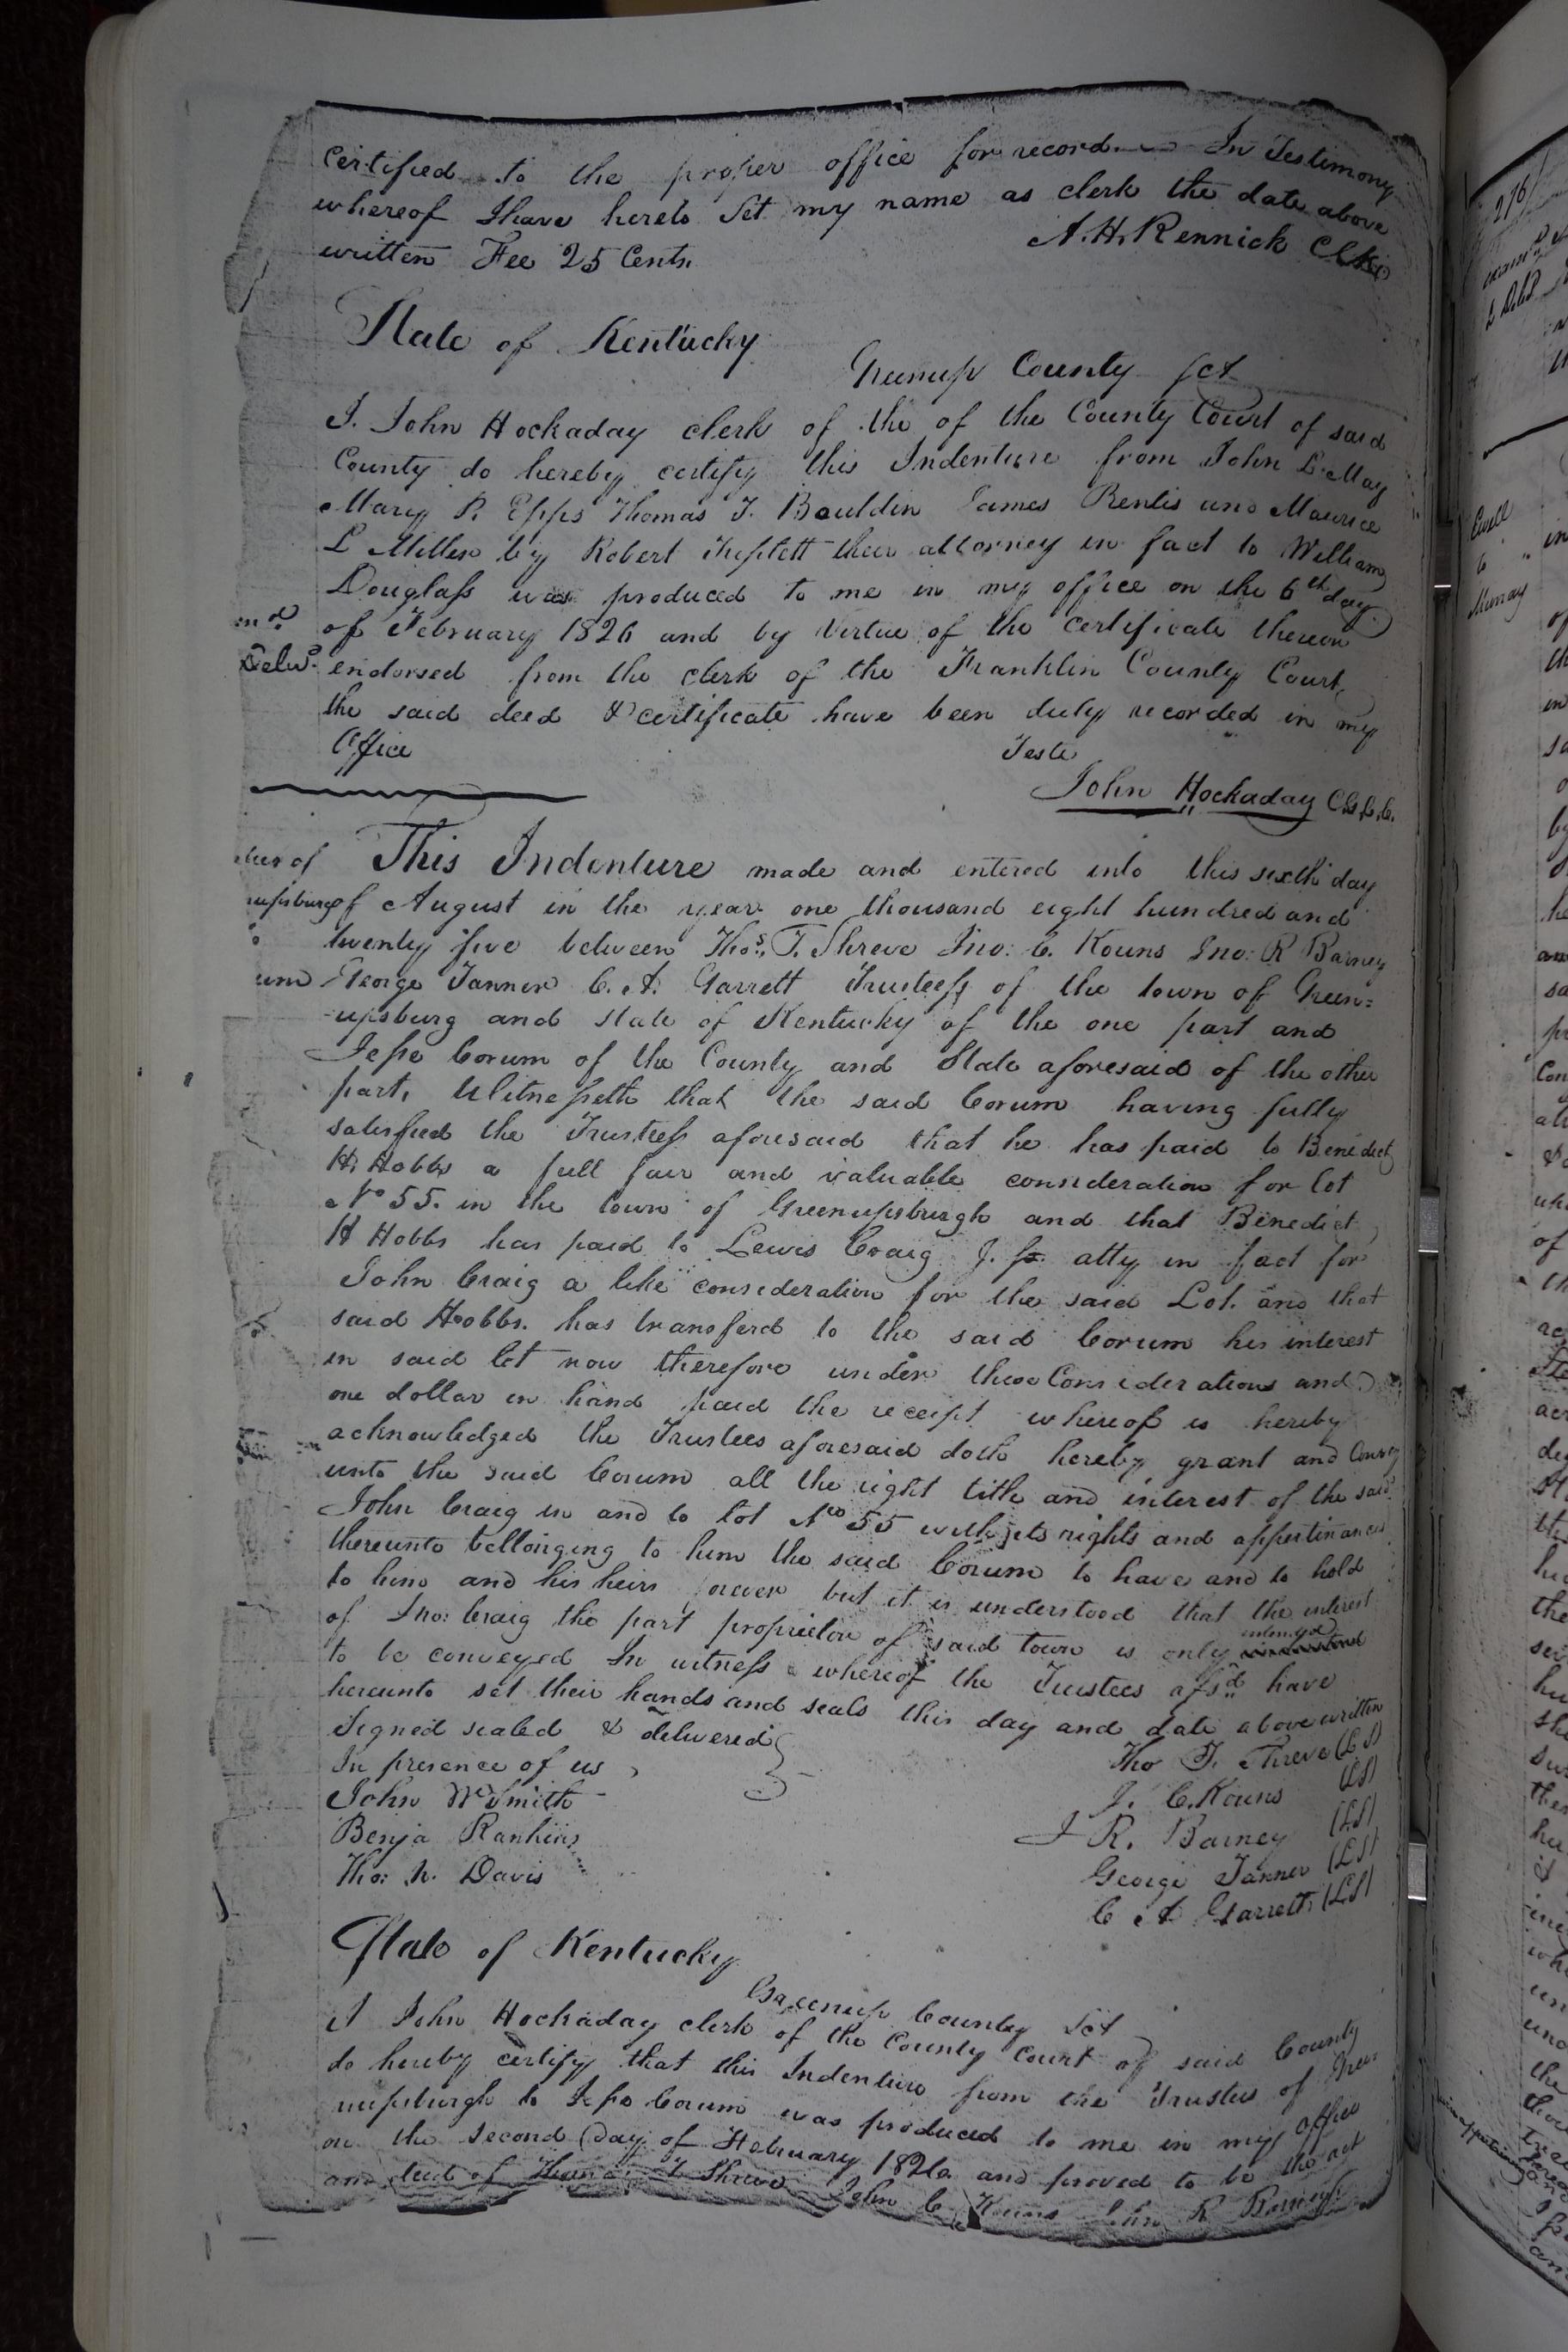 certified to the proper office for record In Testimony
whereof I have hereto Set my name as clerk the date above
written Fee 25 Cents
A. H. Rennick Clk
State of Kentucky
Greenup County Sct
I. John Hockaday clerk of the of the County Court of said
County do hereby certify this Indenture from John L. May
Mary P. Epps Thomas T. Bouldin James Bentis and Maurice
L Miller by Robert Triplett their attorney in fact to William
Douglass was produced to me in my office on the 6th day
md of February 1826 and by Virtue of the certificate thereon
Delvd endorsed from the clerk of the Franklin County Court
the said deed & certificate have been duly recorded in my
Office
Teste
John Hockaday Clk G.C.C.
This Indenture made and entered into this sixth day
of August in the year one thousand eight hundred and
twenty five between Thos. T. Shreve Jno: C. Kouns Jno: R Barney
George Tanner C. A. Garrett Trusteess of the town of Green=
upsburg and state of Kentucky of the one part and
Jesse Corum of the County and State aforesaid of the other
part, Witnesseth that the said Corum having fully
satisfied the Trustess aforesaid that he has paid to Benedict
H. Hobbs a full fair and valuable consideration for lot
No 55. in the town of Greenupsburgh and that Benedict
H Hobbs has paid to Lewis Craig J. atty in fact for
John Craig a like consideration for the said Lot. and that
said Hobbs. has transferd to the said Corum his interest
in said lot now therefore under these Considerations and
one dollar in hand paid the receipt whereof is hereby
acknowledged the Trustees aforesaid doth hereby grant and Convey
unto the said Corum all the right title and interest of the said
John Craig in and to lot No 55 with its rights and appertinances
thereunto bellonging to him the said Corum to have and to hold
to him and his heirs forever but it is understood that the interest
of Jno: Craig the part proprietor of said town is only intended
to be conveyed In witness whereof the Trustees afsd have
hereunto set their hands and seals this day and date above written
Signed sealed & delivered
In presence of us
John W Smith
Benja Rankins
Tho: N. Davis
Tho T. Shreve (LS)
J. C. Kouns (LS)
J R. Barney (LS)
George Tanner (LS)
C A Garrett (LS)
State of Kentucky
Greenup County Sct
I John Hockaday clerk of the County Court of said County
do hereby certify that this Indenture from the Trustees of Green
nupsburgh to Jesse Corum was produced to me in my office
on the second day of February 1826 and proved to be the act
and deed of Thomas T Shreve John C Kouns John R Barney